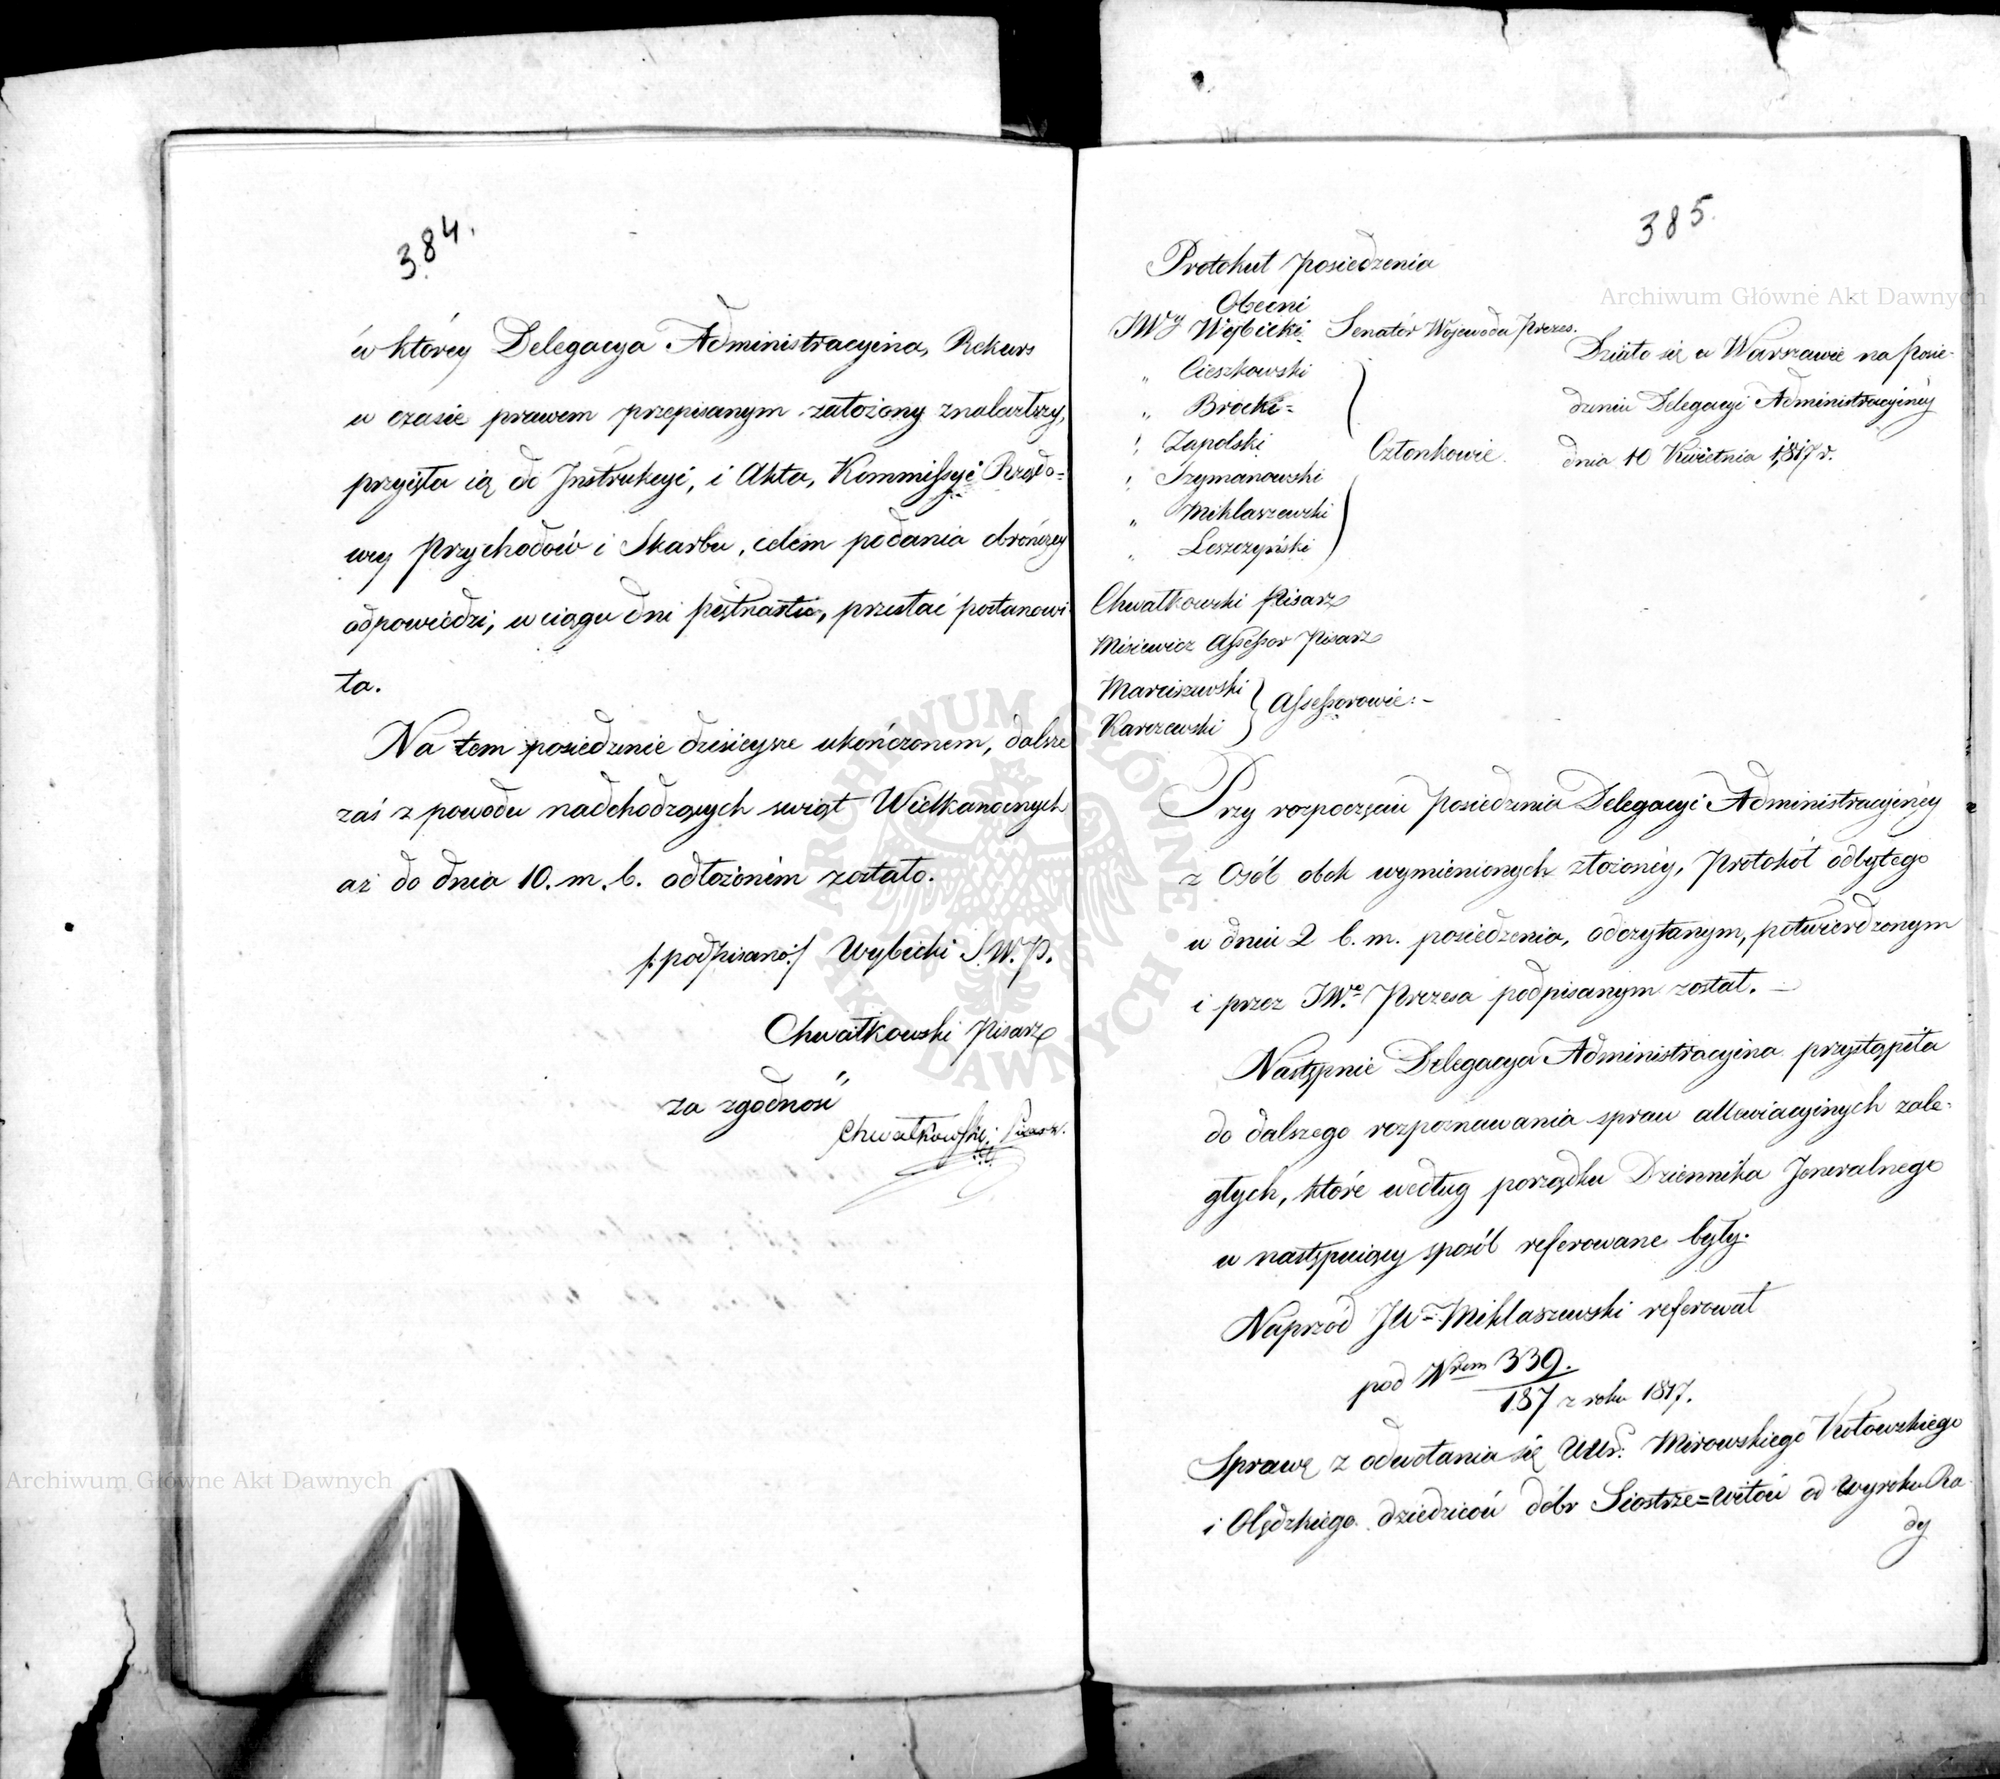 384.
w którey Delegacya Administracyina, Rekurs
w czasie prawem przepisanym założony znalazłszy,
przyięła ią do Instrukcyi, i Akta, Kommissyi Rządo=
wey Przychodów i Skarbu, celem podania obrończey
odpowiedzi, w ciągu dni piętnastu, przesłać postanowi
ła.
Na tem posiedzenie dzisieysze ukończonem, dalsze
zaś z powodu nadchodzących swiąt Wielkanocnych
aż do dnia 10. m. b. odłożonem zostało.
/: podpisano :/ Wybicki S. W. P.
Chwałkowski Pisarz
Za zgodność
Chwałkowski Pisarz.
385.
Protokuł Posiedzenia
Obecni
JWy Wybicki Senator Woiewoda Prezes.
" Cieszkowski
" Brocki=
" Zapolski
" Szymanowski
" Miklaszewski
" Leszczyński
Członkowie.
Działo się w Warszawie na Posie-
dzeniu Delegacyi Administracyiney
dnia 10 Kwietnia 1817 r.
Chwałkowski Pisarz
Misiewicz Assessor Pisarz
Marciszewski
Karczewski
Assessorowie.-
Przy rozpoczęciu Posiedzenia Delegacyi Administracyiney
z Osób obok wymienionych złożoney, Protokół odbytego
w dniu 2 b. m. posiedzenia, odczytanym, potwierdzonym
i przez JWo Prezesa podpisanym został. —
Następnie Delegacya Administracyina przystąpiła
do dalszego rozpoznawania spraw allewiacyinych zale-
głych, które według porządku Dziennika Jeneralnego
w następuiący sposób referowane były.
Naprzód JW Miklaszewski referował
pod Nrem 339.
187 z roku 1817.
Sprawę z odwołania się Uur: Mirowskiego Kotowskiego
i Olędzkiego dziedziców dóbr Siostrze=witów od Wyroku Ra
dy
Archiwum Główne Akt Dawnych
Archiwum Główne Akt Dawnych
ARCHIWUM GŁÓWNE AKT DAWNYCH